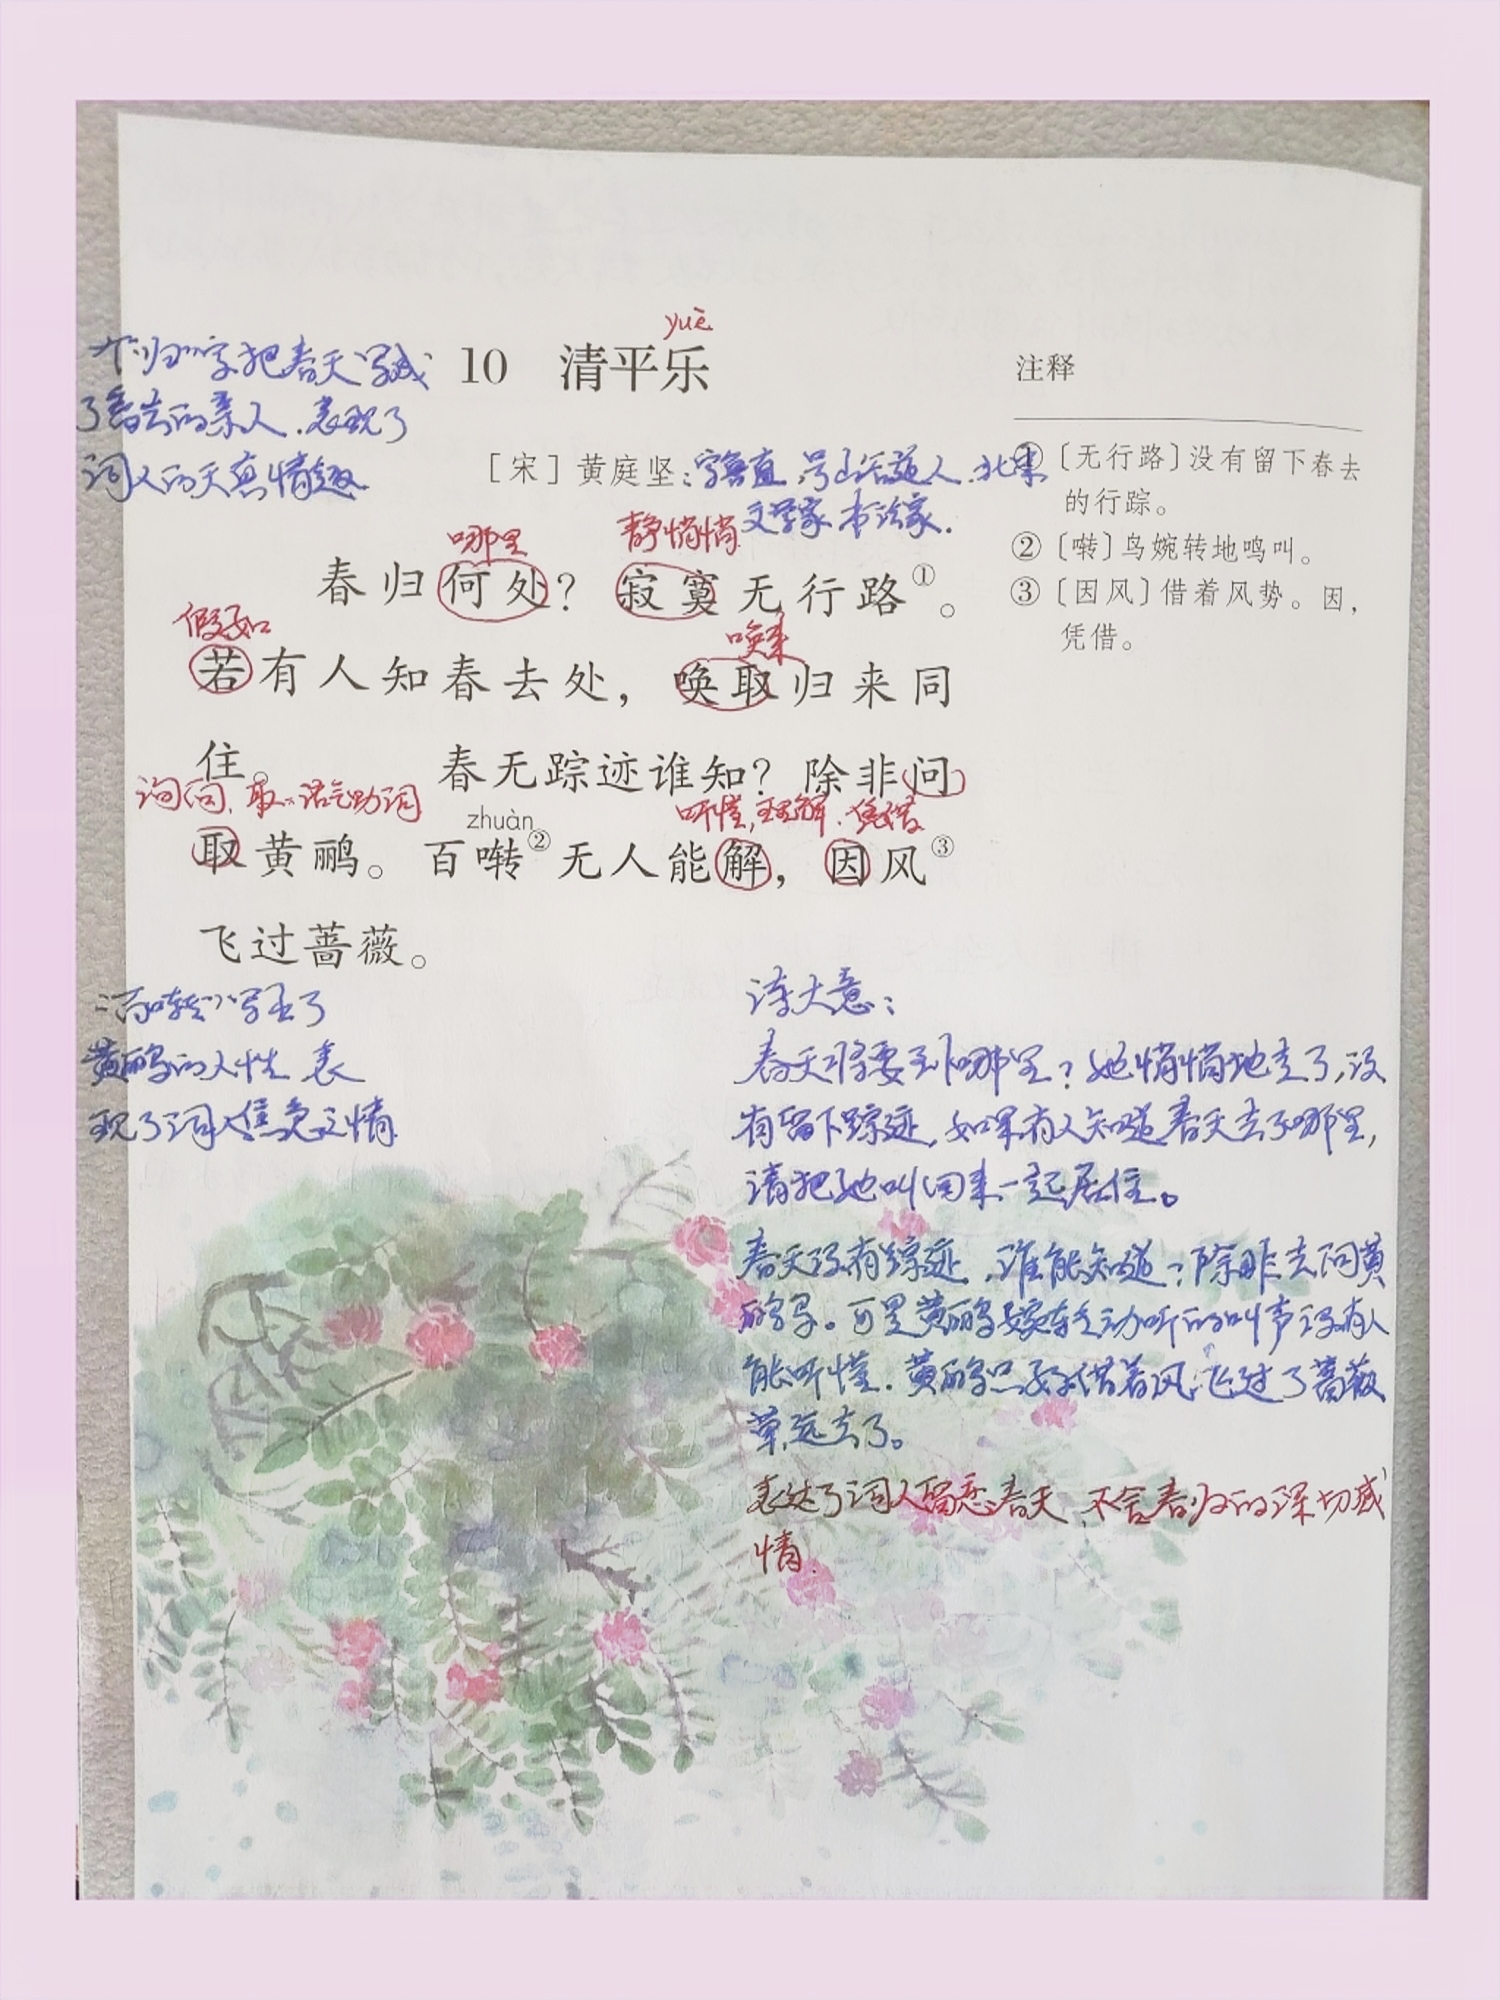 yuè
10 清平乐
个“归”字把春天写成
了离去的亲人，表现了
词人的天真情趣
[宋] 黄庭坚：字鲁直，号山谷道人，北宋
文学家 书法家．
哪里 静悄悄
春归何处？寂寞无行路①。
假如 唤来
若有人知春去处，唤取归来同
住。 春无踪迹谁知？除非问
询问，取：语气助词 zhuàn 听懂，理解．凭借
取黄鹂。百啭②无人能解，因风③
飞过蔷薇。
注释
①〔无行路〕没有留下春去
的行踪。
②〔啭〕鸟婉转地鸣叫。
③〔因风〕借着风势。因，
凭借。
“百啭”写出了
黄鹂的人性 表
现了词人焦急之情
诗大意：
春天将要到哪里？她悄悄地走了，没
有留下踪迹，如果有人知道春天去了哪里，
请把她叫回来一起居住。
春天没有踪迹，谁能知道？除非去问黄
鹂鸟。可是黄鹂婉转动听的叫声没有人
能听懂．黄鹂只好借着风飞过了蔷薇
草，远去了。
表达了词人留恋春天，不舍春归的深切感
情．